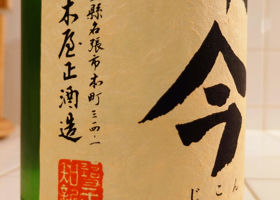 今
じこん
縣名張市本町三四・一
木屋正酒造